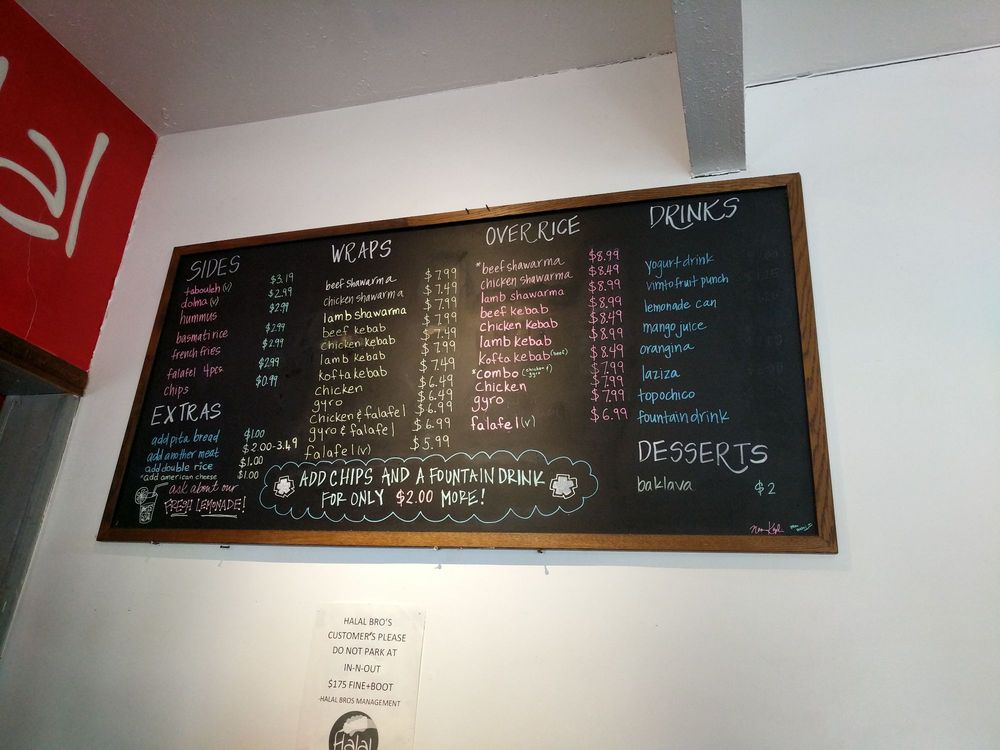 al
SIDES
tabouleh (v) $3.19
dolma (v) $2.99
hummus $2.99
basmati rice $2.99
french fries $2.99
falafel 4pcs $2.99
chips $0.99
EXTRAS
add pita bread $1.00
add another meat $2.00-3.49
add double rice $1.00
*add american cheese $1.00
ask about our
FRESH LEMONADE!
WRAPS
beef shawarma $7.99
chicken shawarma $7.49
lamb shawarma $7.99
beef kebab $7.99
chicken kebab $7.49
lamb kebab $7.99
kofta kebab $7.49
chicken $6.49
gyro $6.49
chicken & falafel $6.99
gyro & falafel $6.99
falafel (v) $5.99
OVER RICE
*beef shawarma $8.99
chicken shawarma $8.49
lamb shawarma $8.99
beef kebab $8.99
chicken kebab $8.49
lamb kebab $8.99
kofta kebab (beef) $8.49
*combo (chicken & gyro) $7.99
chicken $7.99
gyro $7.99
falafel (v) $6.99
ADD CHIPS AND A FOUNTAIN DRINK
FOR ONLY $2.00 MORE!
DRINKS
yogurt drink
vimto fruit punch
lemonade can
mango juice
orangina
laziza
topochico
fountain drink
DESSERTS
baklava $2
HALAL BRO'S
CUSTOMER'S PLEASE
DO NOT PARK AT
IN-N-OUT
$175 FINE+BOOT
-HALAL BROS MANAGEMENT
Halal